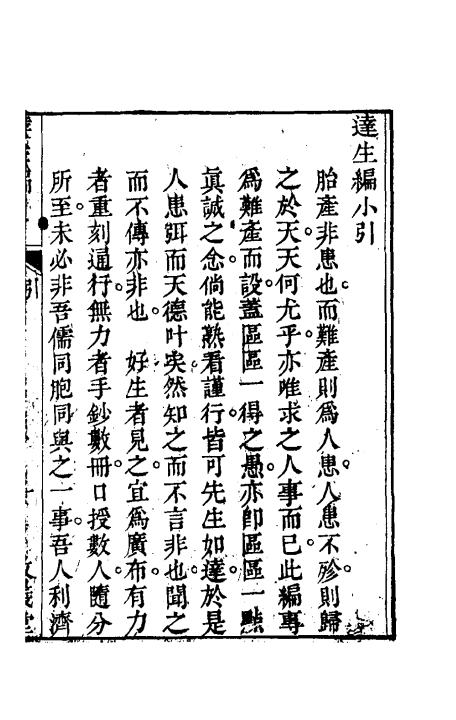 達生編小引
胎產非患也而難產則爲人患人患不殄則歸
之於天天何尤乎亦唯求之人事而已此編專
爲難產而設蓋區區一得之愚亦卽區區一點
眞誠之念倘能熟看謹行皆可先生如達於是
人患弭而天德叶矣然知之而不言非也聞之
而不傳亦非也　好生者見之宜爲廣布有力
者重刻通行無力者手鈔數冊口授數人隨分
所至未必非吾儒同胞同與之一事吾人利濟
引